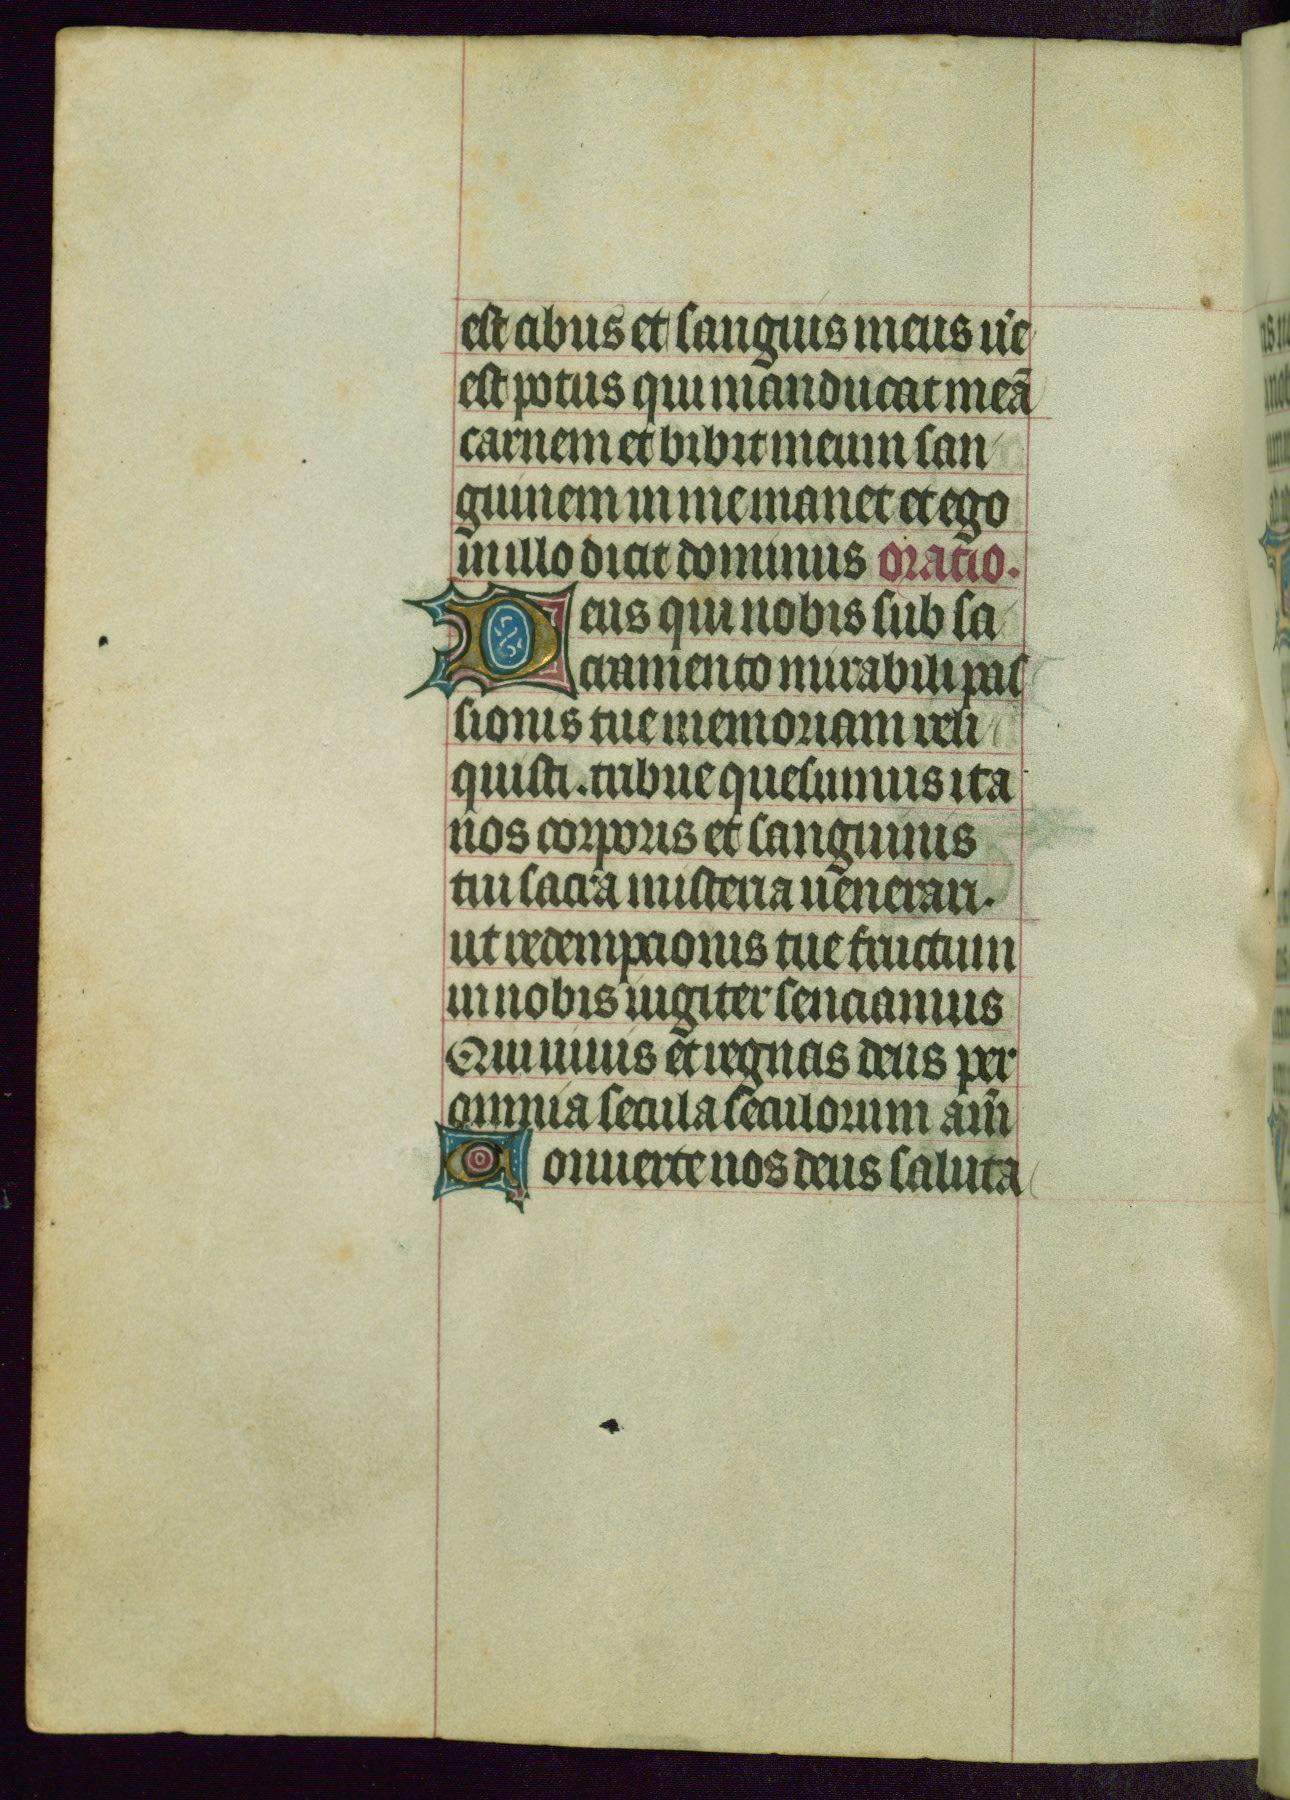 est cibus et sanguis meus u'e
est potus qui manducat meā
carnem et bibit meum san
guinem in me manet et ego
in illo dicit dominus oratio.
Deus qui nobis sub sa
cramento mirabili pas
sionis tue memoriam reli
quisti . tribue quesumus ita
nos corporis et sanguinis
tui sacra misteria uenerari.
ut redempcionis tue fructum
in nobis iugiter senciamus
Qui uiuis et regnas deus per
omnia secula seculorum am̄
Conuerte nos deus saluta